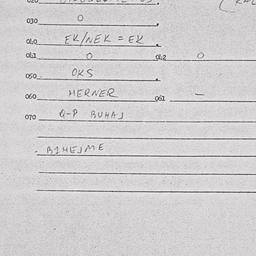 030 0
040 EK/NEK = EK
041 0 042 0
050 OKS
060 HERNER 061 -
070 Q-P BUHAJ
BIHEJME